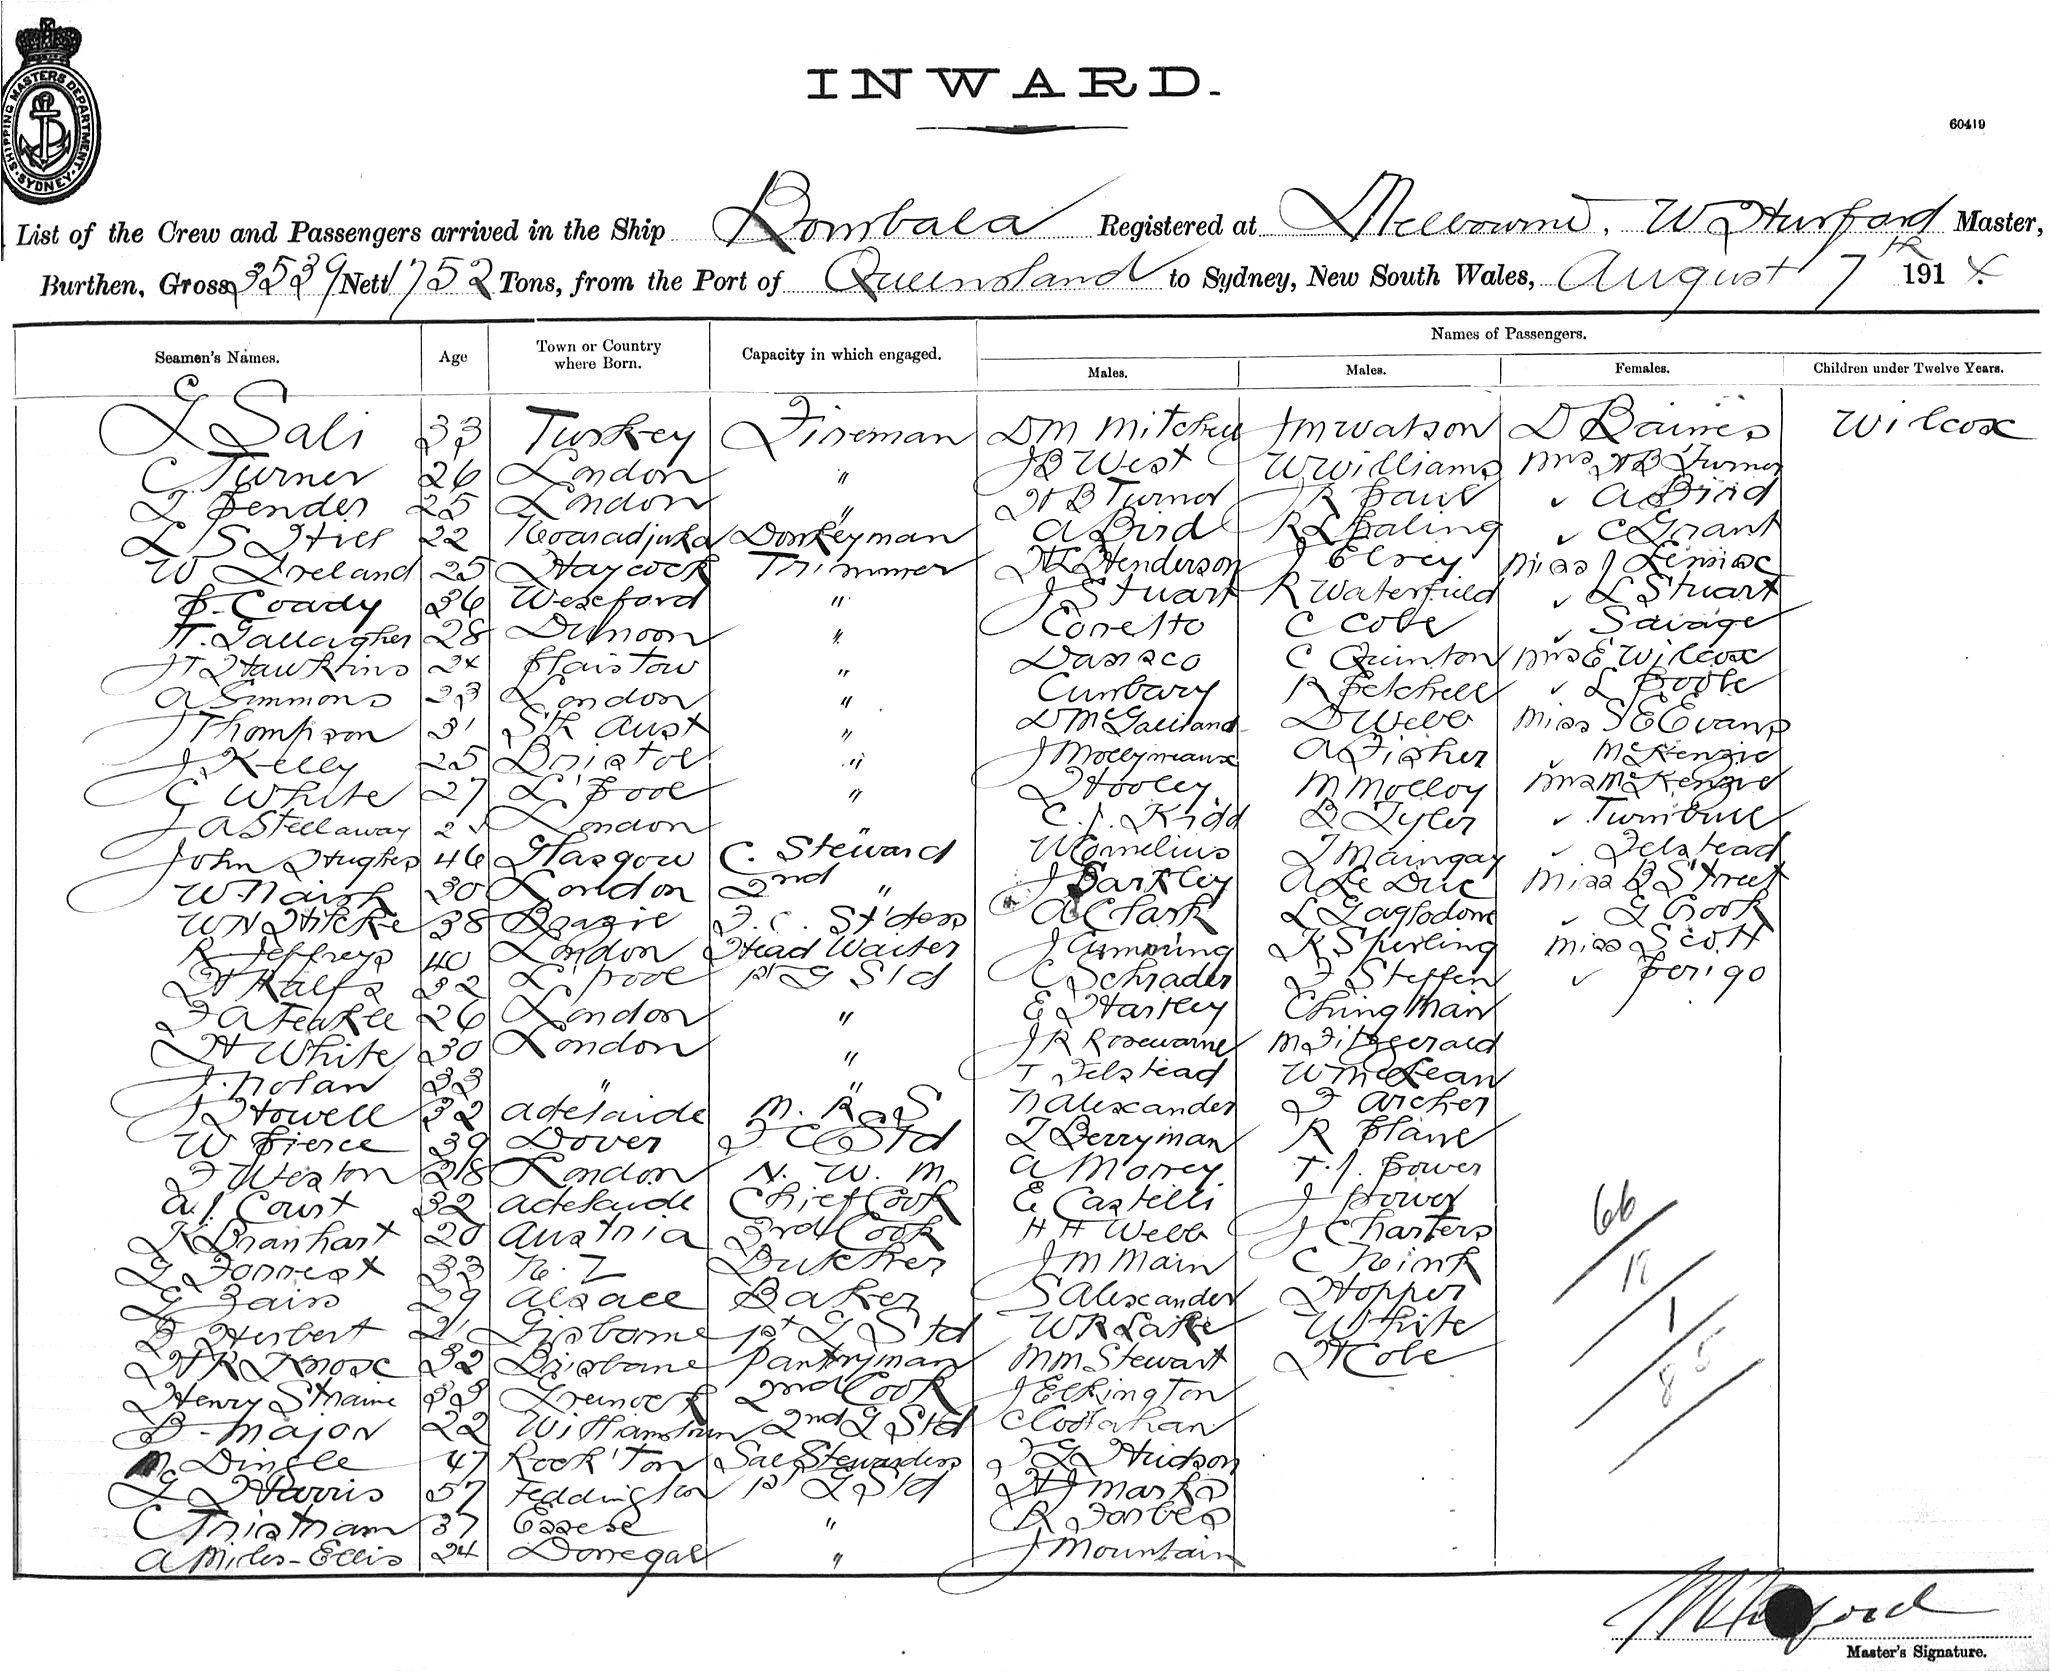 SHIPPING MASTERS DEPARTMENT
SYDNEY
INWARD.
60419
List of the Crew and Passengers arrived in the Ship Bombala Registered at Melbourne. W Hurford Master,
Burthen, Gross 3539 Nett 1752 Tons, from the Port of Queensland to Sydney, New South Wales, August 7th 1914.
Names of Passengers.
Seamen's Names. Age Town or Country where Born. Capacity in which engaged. Males. Males. Females. Children under Twelve Years.
G Sali 33 Turkey Fireman D M Mitchell J M Watson D Baines Wilcox
C Turner 26 London " J B West W Williams Mrs H B Turner
T Pender 25 London " H B Turner J R Paul " A Bird
L S Hill 22 Donkeyman A Bird R L Paling " C Grant
W Ireland 25 Haycock Trimmer H L Henderson J Elrey Miss J
P. Coady 36 Wexford " J Stuart R Waterfield " L Stuart
H. Gallagher 28 Dunoon " Conetto C Cole " Savage
J T Hawkins 24 Plaistow " Danaco C Quinton Mrs E Wilcox
A Simmons 23 London " Cumbary R Petchell " L Poole
J Thompson 31 Sth Aust " D McGalland D Webb Miss S E Evans
J Kelly 25 Bristol " J Mollymeaux A Fisher " McKenzie
C White 27 L'Pool " Hooley M Molloy Mrs McKenzie
J A Stellaway London " C. J. Kidd B Tyler " Turnbull
John Hughes 46 Glasgow C. Steward W Cornelius T Maingay " Felstead
W Naish 30 London 2nd " J Barkley A Le Duc Miss B Street
W N Hicke 38 Brazil F. C. St'dess A Clark L " G Crook
R Jeffreys 40 London Head Waiter J Cumming K Sperling Miss Scott
H Ralfs 32 L'pool 1st G St'd C Schrader F Steffen " Perigo
F A Teakle 26 London " E Hartley Ching Man
H White 30 London " J R Rosewarne M Fitzgerald
J. Nolan 33 " " T Felstead W McLean
J Howell 32 Adelaide M. R. S N Alexander F Archer
W Pierce 39 Dover F C Std T Berryman R Plane
F Weston 28 London N. W. M A Morrey T. J. Power
A. J. Court 32 Adelaide Chief Cook E Castelli J Power
K Branhart 20 Austria 3rd Cook H H Webb J Charters
G Forrest 33 N. Z Butcher J M Main C Heink
G Zairs 29 Alsace Baker S Alexander Hopper
B Herbert 21 Gisborne 1st G Std W R Lake White
H R Knose 32 Brisbane Pantryman M M Stewart H Cole
Henry Strame 33 Greenock 2nd Cook J Elkington
B - Major 22 Williamstown 2nd G Std C Costahan
M Dingle 47 Rock'Ton Sal Stewardess F G Hudson
G Harris 57 Teddington 1st G Std H J Marks
C Tristram 37 Essex " R Forbes
A Miles-Ellis 24 Donegal " J Mountain
66
18
1
85
Master's Signature.